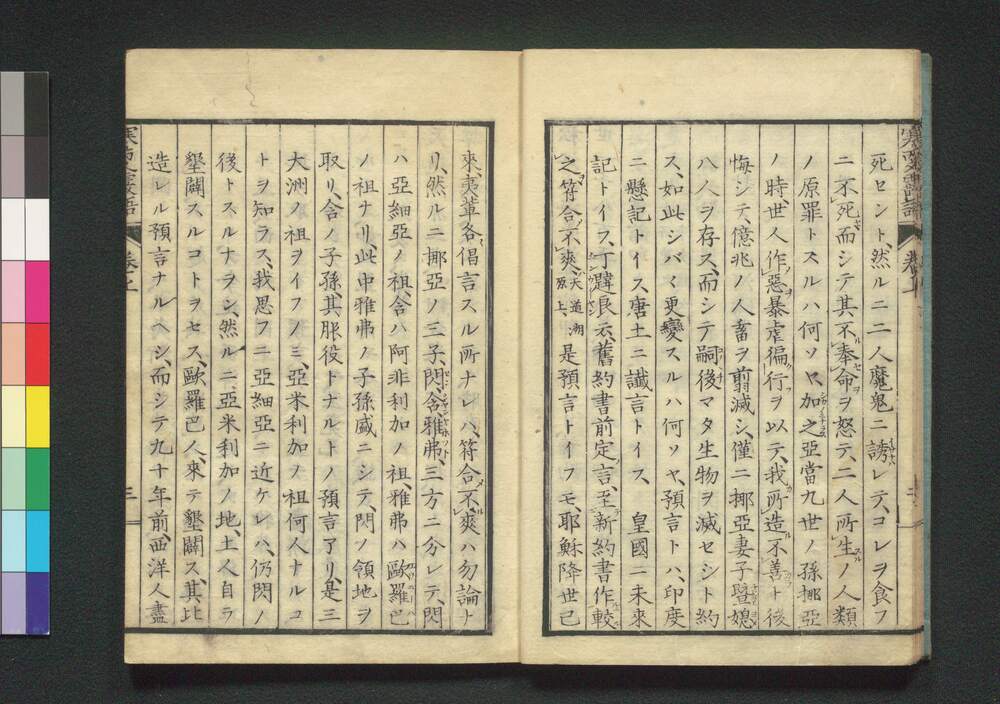 死セント、然ルニ二人魔鬼ニ誘レテ、コレヲ食フ
ニ不死而シテ其不奉命ヲ怒テ、二人所生ノ人類
ノ原罪トスルハ何ソヤ、加之亞當九世ノ孫挪亞
ノ時、世人作惡暴虐徧行ヲ以テ、我所造不善ト後
悔シテ、億兆ノ人畜ヲ翦滅シ、僅ニ挪亞妻子曁媳
八人ヲ存ス、而シテ嗣後マタ生物ヲ滅セシト約
ス、如此シバ〱更變スルハ何ソヤ、預言トハ、印度
ニ懸記トイス、唐土ニ讖言トイス、皇國ニ未來
記トイフ、丁韙良云、舊約書前定言、至新約書作較
之符合不爽、天道溯原上、是預言トイフモ、耶穌降世已
來、夷輩各倡言スル所ナレハ、符合不爽ハ勿論ナ
リ、然ルニ挪亞ノ三子、閃、含、雅弗、三方ニ分レテ、閃
ハ亞細亞ノ祖、含ハ阿非利加ノ祖、雅弗ハ歐羅巴
ノ祖ナリ、此中雅弗ノ子孫盛ニシテ、閃ノ領地ヲ
取リ、含ノ子孫、其服役トナルトノ預言了リ、是三
大洲ノ祖ヲイフノミ、亞米利加ノ祖何人ナルコ
トヲ知ラス、我思フニ亞細亞ニ近ケレハ、仍閃ノ
後トスルナヲン、然ルニ、亞米利加ノ地、土人自ラ
墾闢スルコトヲセス、歐羅巴人、來テ墾闢ス、其比
造レル預言ナルヘシ、而シテ九十年前、西洋人盡
卷上
三